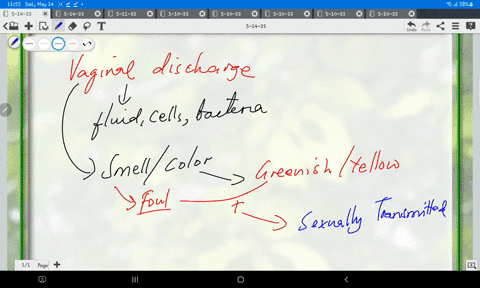 11:55 Sat, May 14
59%
5-14-22 5-14-22 5-11-22 5-10-22 5-10-22 5-10-22 5-10-22 5-10-22
5-14-22
Undo Redo
Vaginal discharge
fluid, cells, bacteria
Smell/Color Greenish/Yellow
Foul
+ Sexually Transmitted
1/1 Page +